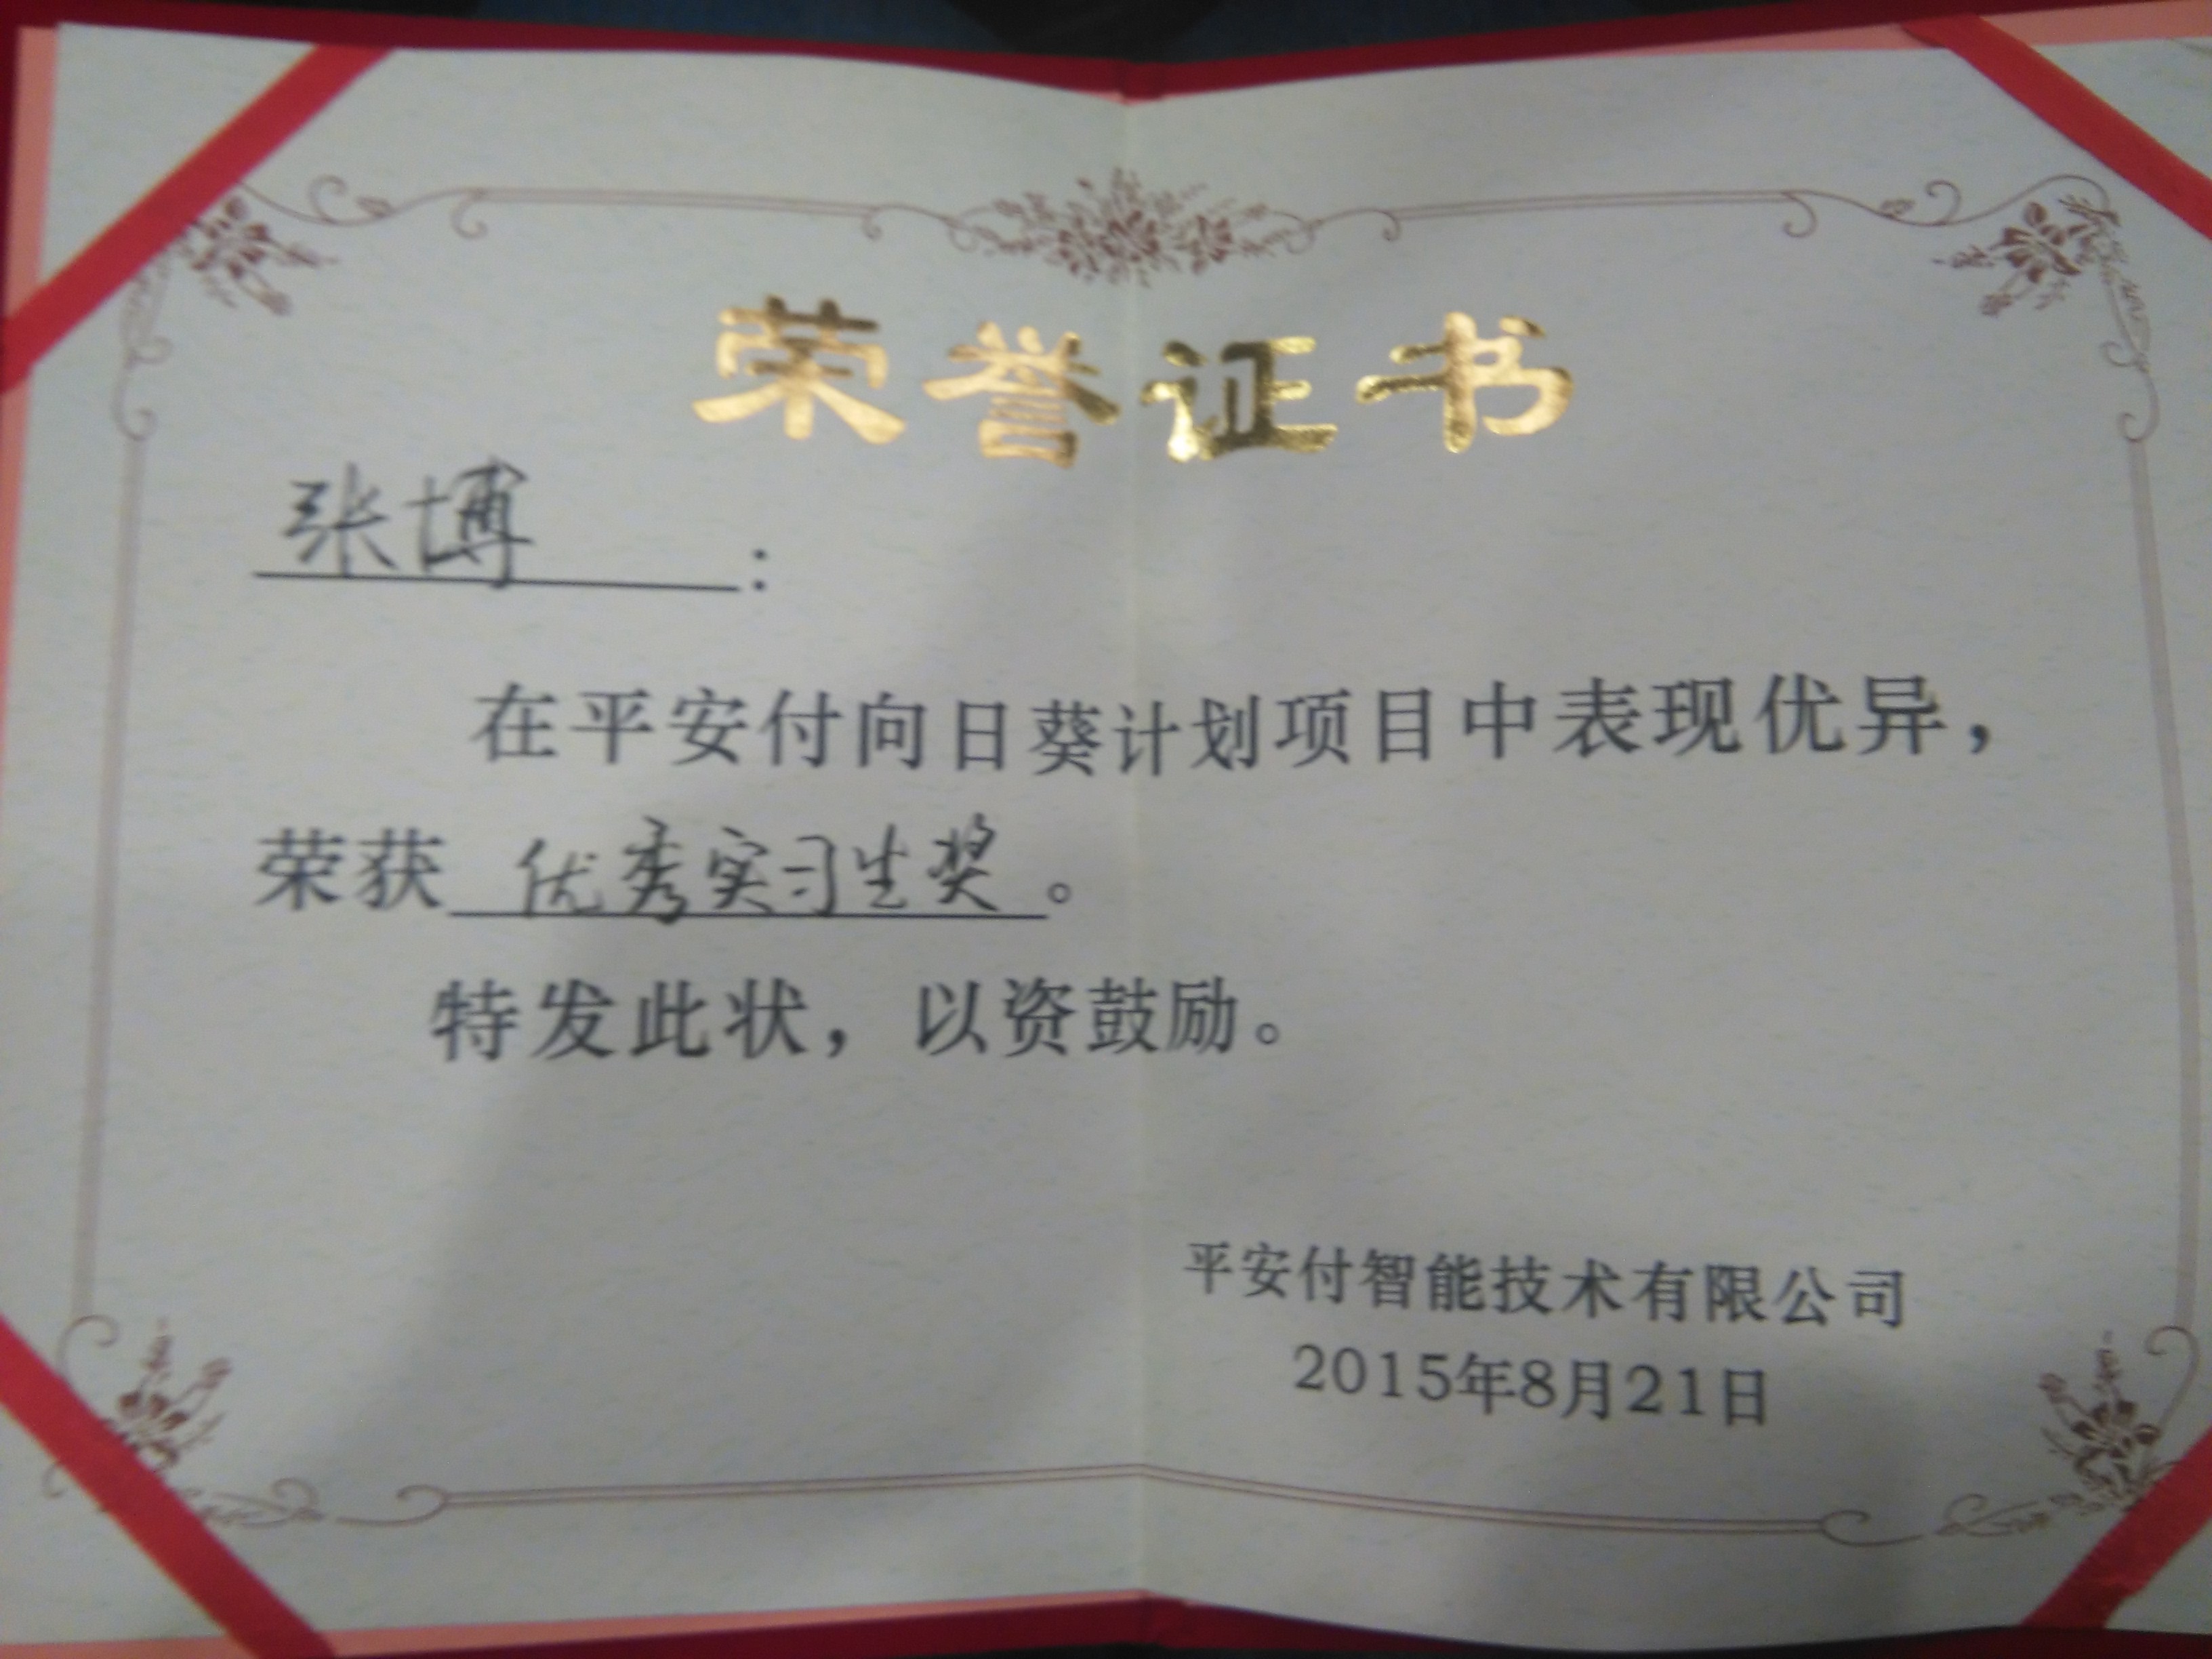 荣誉证书
张博：
在平安付向日葵计划项目中表现优异，
荣获优秀实习生奖。
特发此状，以资鼓励。
平安付智能技术有限公司
2015年8月21日